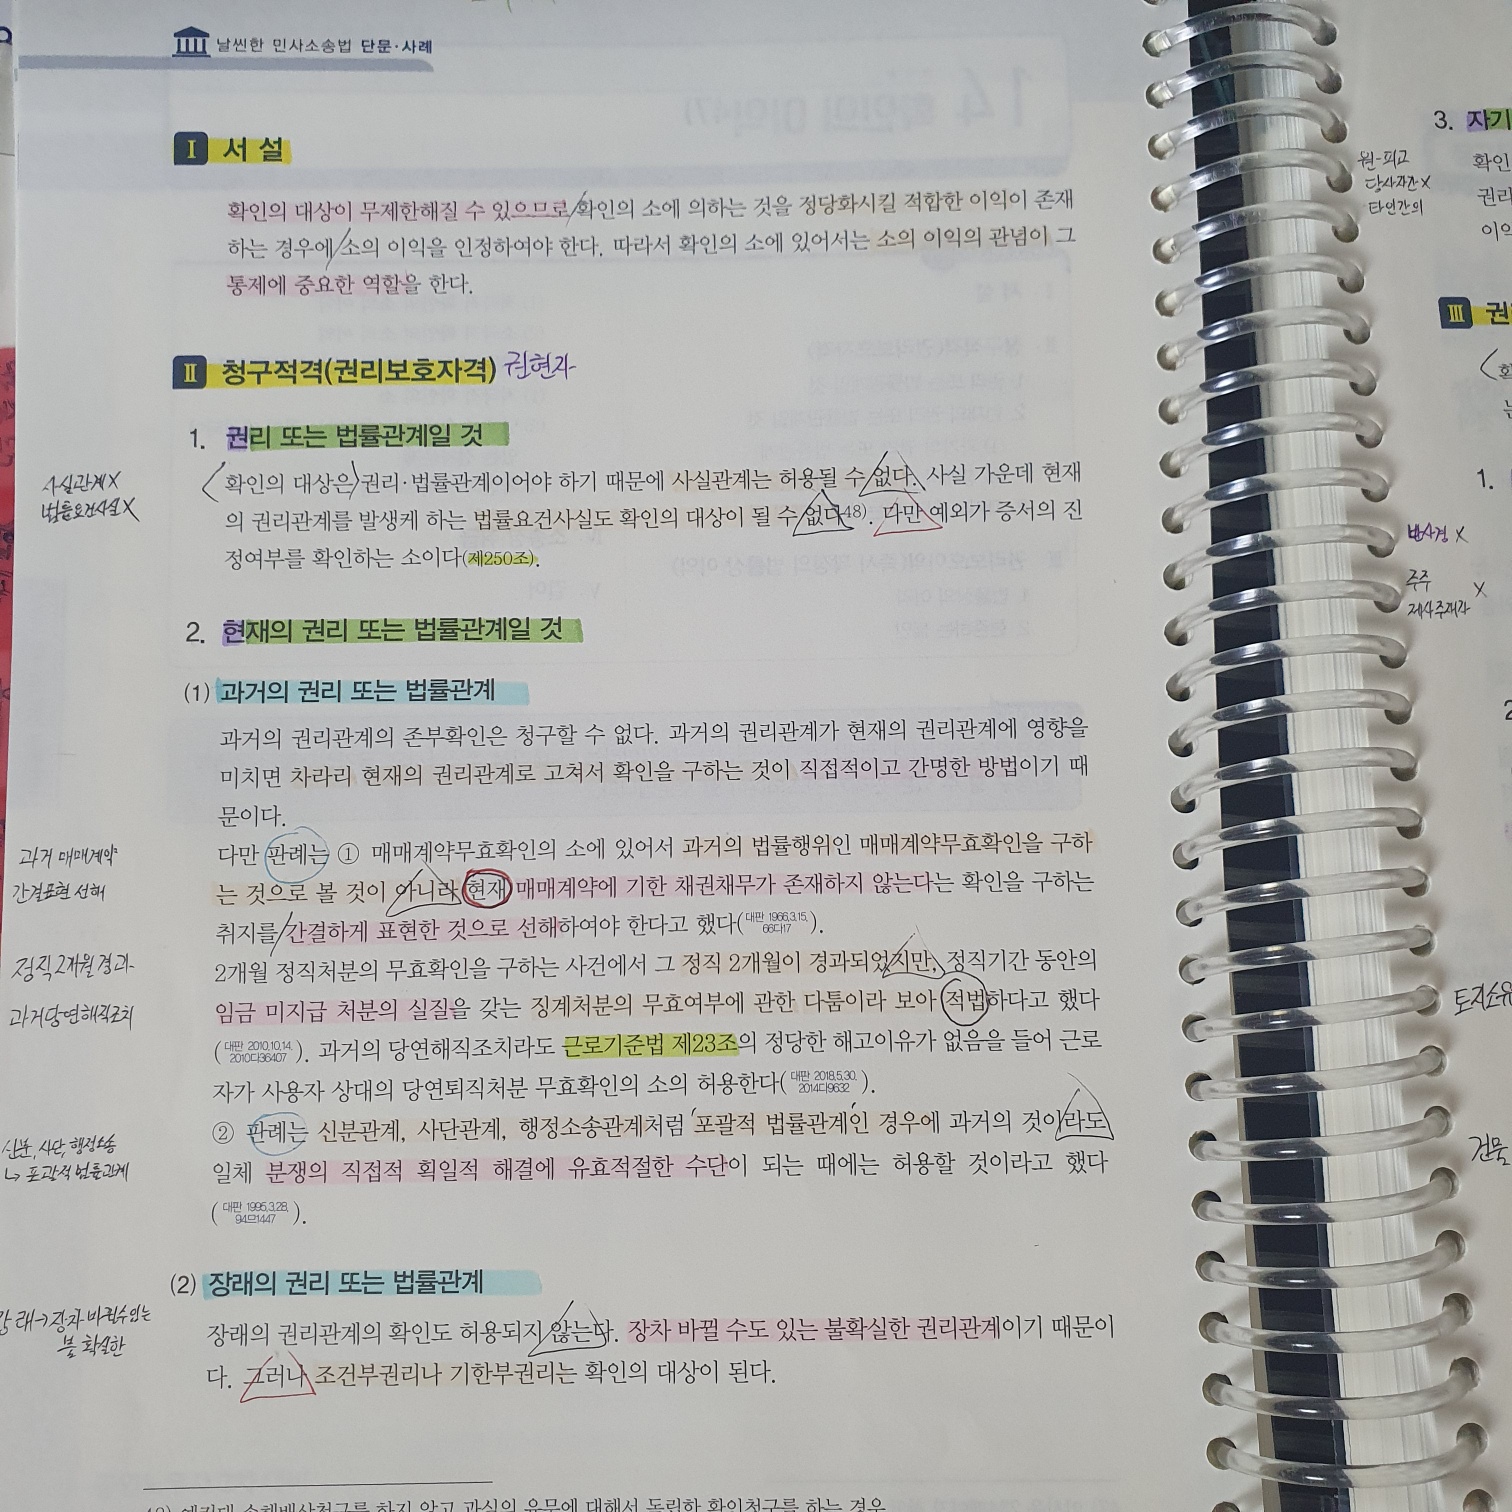 날씬한 민사소송법 단문·사례
I 서 설
확인의 대상이 무제한해질 수 있으므로 확인의 소에 의하는 것을 정당화시킬 적합한 이익이 존재
하는 경우에 소의 이익을 인정하여야 한다. 따라서 확인의 소에 있어서는 소의 이익의 관념이 그
통제에 중요한 역할을 한다.
II 청구적격(권리보호자격) 권현자
1. 권리 또는 법률관계일 것
확인의 대상은 권리·법률관계이어야 하기 때문에 사실관계는 허용될 수 없다. 사실 가운데 현재
의 권리관계를 발생케 하는 법률요건사실도 확인의 대상이 될 수 없다48). 다만 예외가 증서의 진
정여부를 확인하는 소이다(제250조).
사실관계 X
법률요건사실 X
2. 현재의 권리 또는 법률관계일 것
(1) 과거의 권리 또는 법률관계
과거의 권리관계의 존부확인은 청구할 수 없다. 과거의 권리관계가 현재의 권리관계에 영향을
미치면 차라리 현재의 권리관계로 고쳐서 확인을 구하는 것이 직접적이고 간명한 방법이기 때
문이다.
다만 판례는 ① 매매계약무효확인의 소에 있어서 과거의 법률행위인 매매계약무효확인을 구하
는 것으로 볼 것이 아니라 현재 매매계약에 기한 채권채무가 존재하지 않는다는 확인을 구하는
취지를 간결하게 표현한 것으로 선해하여야 한다고 했다(대판 1966.3.15. 66다17).
과거 매매계약
간결표현 선해
2개월 정직처분의 무효확인을 구하는 사건에서 그 정직 2개월이 경과되었지만, 정직기간 동안의
임금 미지급 처분의 실질을 갖는 징계처분의 무효여부에 관한 다툼이라 보아 적법하다고 했다
(대판 2010.10.14. 2010다36407). 과거의 당연해직조치라도 근로기준법 제23조의 정당한 해고이유가 없음을 들어 근로
자가 사용자 상대의 당연퇴직처분 무효확인의 소의 허용한다(대판 2018.5.30. 2014다9632).
정직 2개월 경과
과거당연해직조치
② 판례는 신분관계, 사단관계, 행정소송관계처럼 '포괄적 법률관계'인 경우에 과거의 것이라도
일체 분쟁의 직접적 획일적 해결에 유효적절한 수단이 되는 때에는 허용할 것이라고 했다
(대판 1995.3.28. 94므1447).
신분, 사단, 행정소송
↳ 포괄적 법률관계
(2) 장래의 권리 또는 법률관계
장래의 권리관계의 확인도 허용되지 않는다. 장차 바뀔 수도 있는 불확실한 권리관계이기 때문이
다. 그러나 조건부권리나 기한부권리는 확인의 대상이 된다.
장래→장차 바뀔수있는
불확실한
3. 자기
확인
권리
이익
원-피고
당사자간 X
타인간의
III 권
1.
반사경 X
종주
제사주재자 X
토지소유
건물